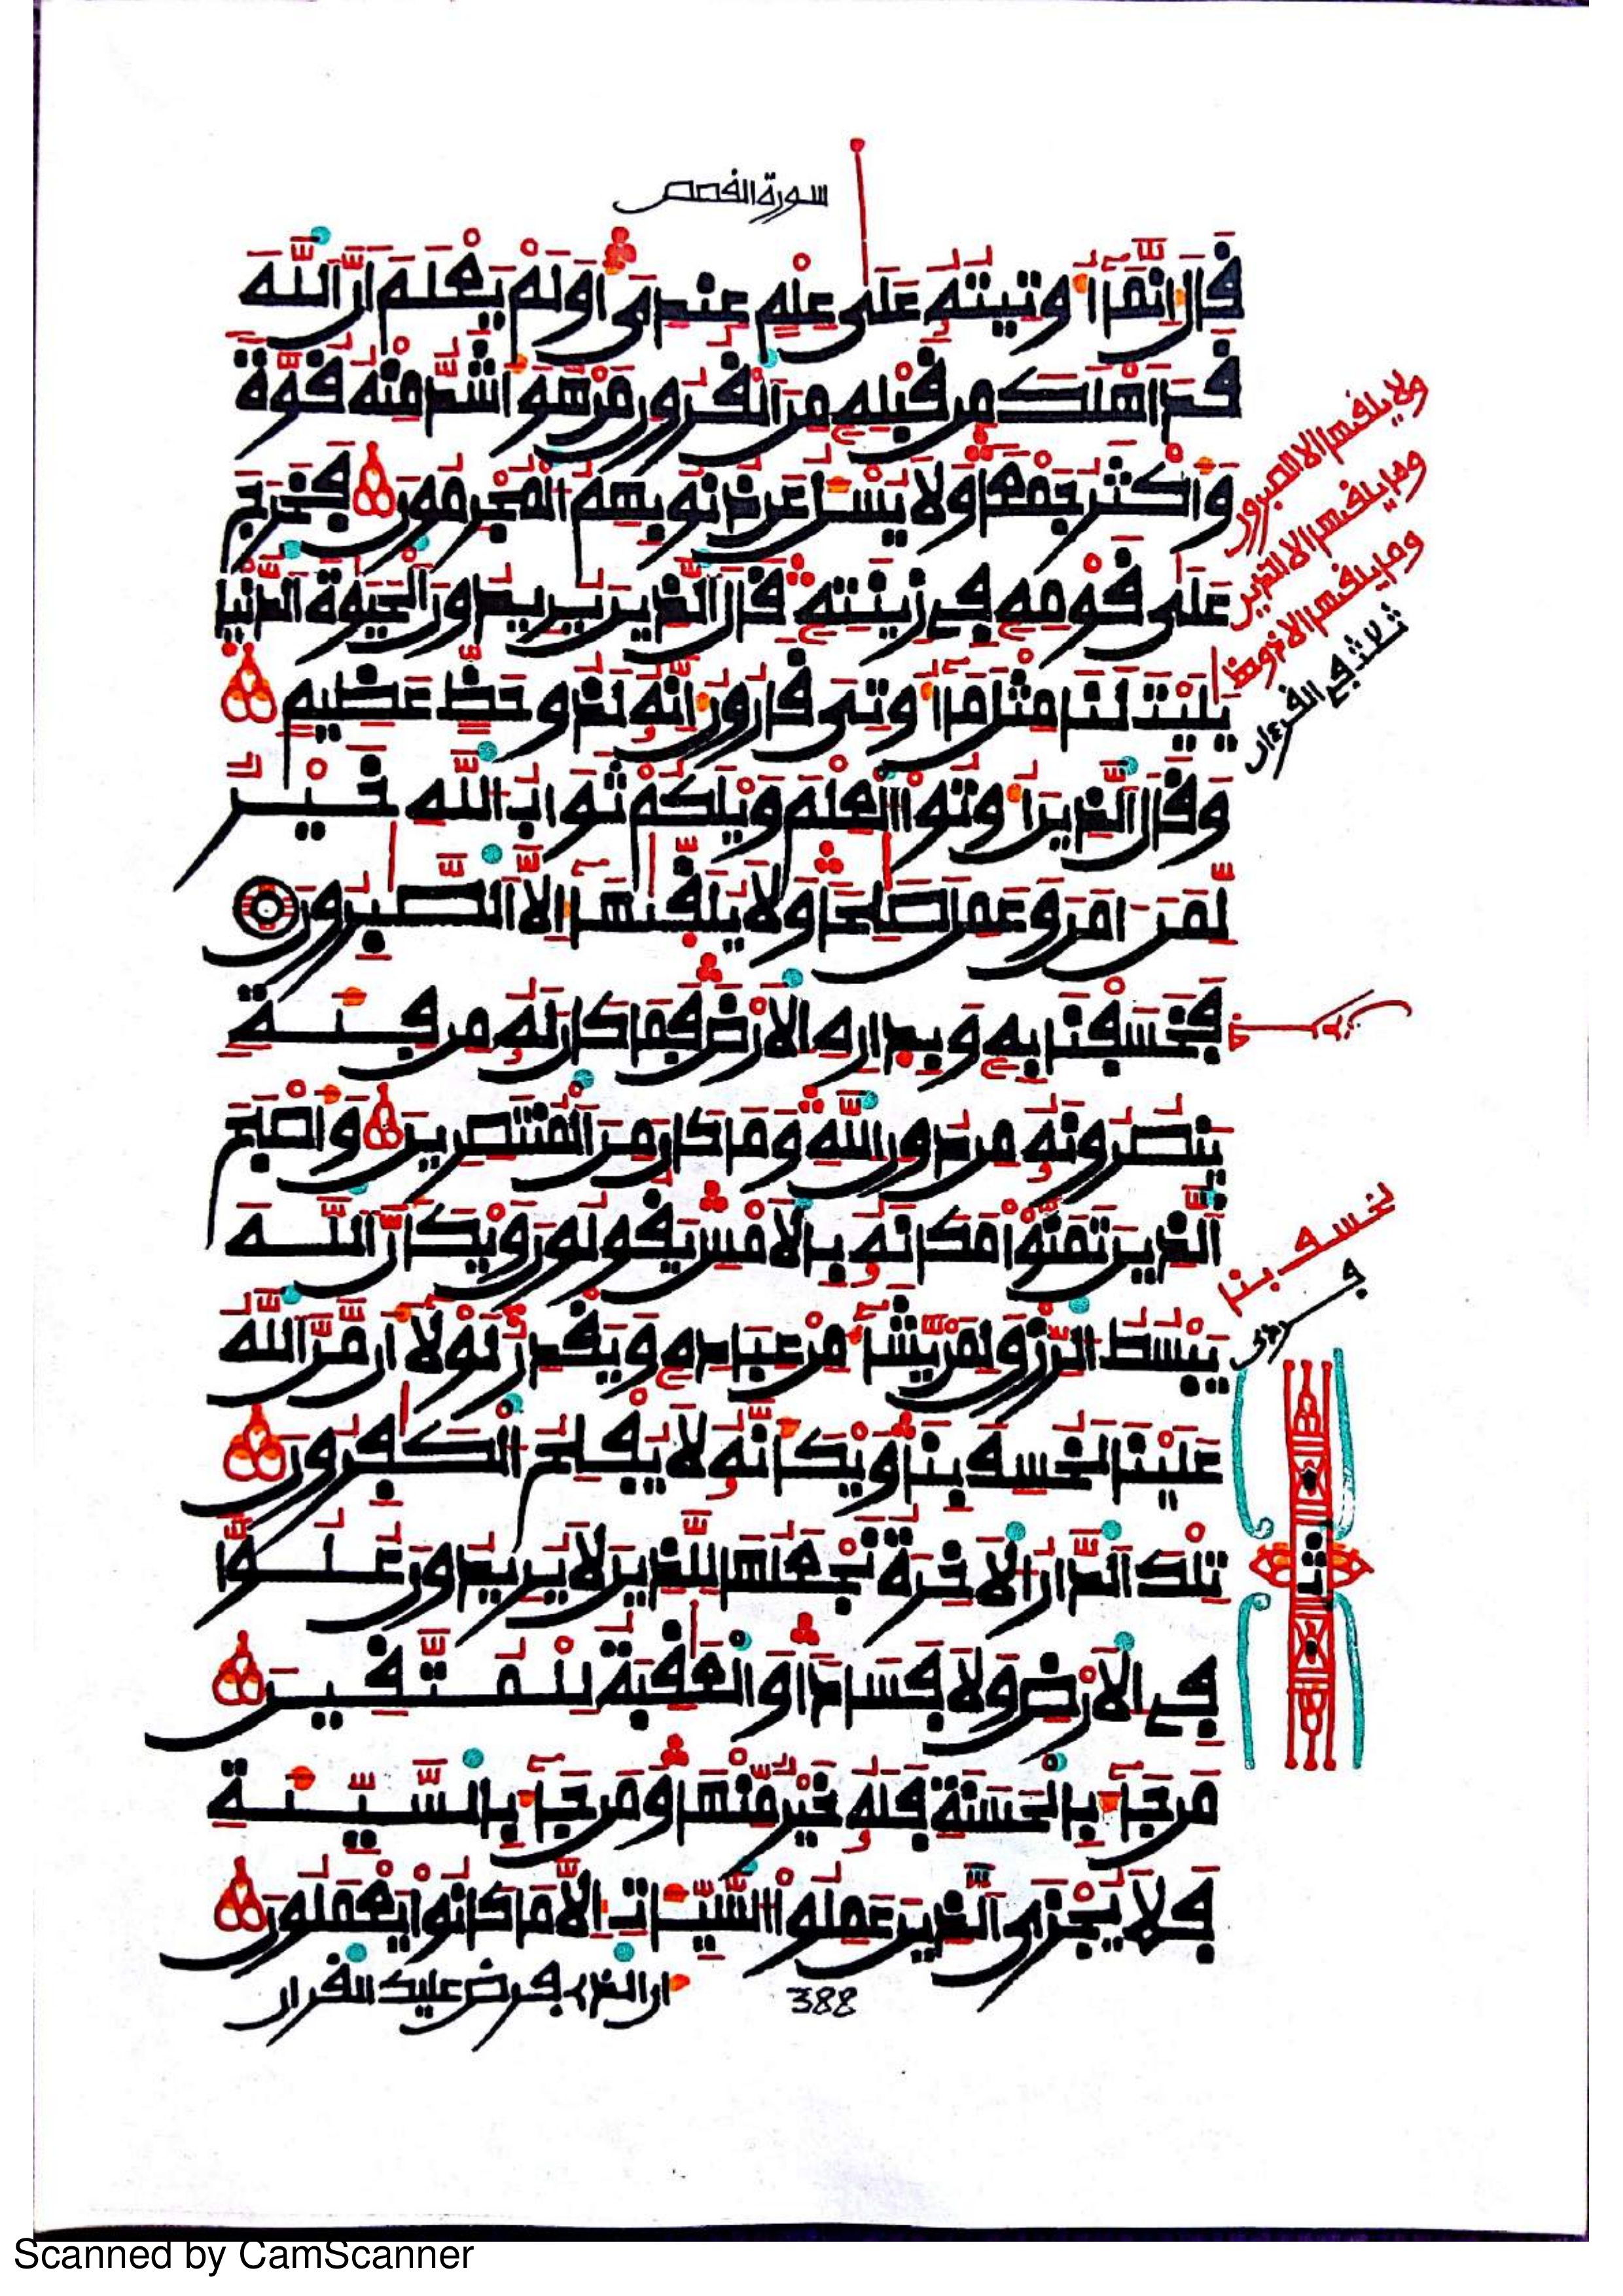 سورة القصص
قَالَ إِنَّمَا أُوتِيتُهُ عَلَى عِلْمٍ عِندِي أَوَلَمْ يَعْلَمَ اَنَّ اَللَّهَ
قَدَ اَهْلَكَ مِن قَبْلِهِ مِنَ اَلْقُرُونِ مَنْ هُوَ أَشَدُّ مِنْهُ قُوَّةً
وَأَكْثَرُ جَمْعًا وَلَا يُسْـَٔلُ عَن ذُنُوبِهِمُ اُلْمُجْرِمُونَ فَخَرَجَ
عَلَى قَوْمِهِ فِي زِينَتِهِ قَالَ اَلذِينَ يُرِيدُونَ اَلْحَيَوٰةَ اَلدُّنْيَا
يَٰلَيْتَ لَنَا مِثْلَ مَا أُوتِيَ قَٰرُونُ إِنَّهُ لَذُو حَظٍّ عَظِيمٍ
وَقَالَ اَلذِينَ أُوتُوا اُلْعِلْمَ وَيْلَكُمْ ثَوَابُ اُللَّهِ خَيْرٌ
لِّمَنَ اٰمَنَ وَعَمِلَ صَٰلِحًا وَلَا يُلَقَّىٰهَا إِلَّا اَلصَّٰبِرُونَ
فَخَسَفْنَا بِهِ وَبِدَارِهِ اِلْأَرْضَ فَمَا كَانَ لَهُ مِن فِئَةٍ
يَنصُرُونَهُ مِن دُونِ اِللَّهِ وَمَا كَانَ مَِنَ اَلْمُنتَصِرِينَ وَأَصْبَحَ
اَلذِينَ تَمَنَّوْا مَكَانَهُ بِالْأَمْسِ يَقُولُونَ وَيْكَأَنَّ اَللَّهَ
يَبْسُطُ اُلرِّزْقَ لِمَنْ يَّشَاءُ مِنْ عِبَادِهِ وَيَقْدِرُ لَوْلَا أَن مَّنَّ اَللَّهُ
عَلَيْنَا لَخُسِفَ بِنَا وَيْكَأَنَّهُ لَا يُفْلِحُ اُلْكَٰفِرُونَ
تِلْكَ اَلدَّارُ اُلْأَخِرَةُ نَجْعَلُهَا لِلذِينَ لَا يُرِيدُونَ عُلُوًّا
فِي اِلْأَرْضِ وَلَا فَسَادًا وَالْعَٰقِبَةُ لِلْمُتَّقِينَ
مَن جَاءَ بِالْحَسَنَةِ فَلَهُ خَيْرٌ مِّنْهَا وَمَن جَاءَ بِالسَّيِّئَةِ
فَلَا يُجْزَى اَلذِينَ عَمِلُوا اُلسَّيِّـَٔاتِ إِلَّا مَا كَانُوا يَعْمَلُونَ
ان الذي فرض عليك القران
388
ولا يلقىها الا الصبرون
وما يلقىها الا الذين
وما يلقىها الا ذو حظ
ثلاث في القرءان
يخسف بنا
ثمن
Scanned by CamScanner